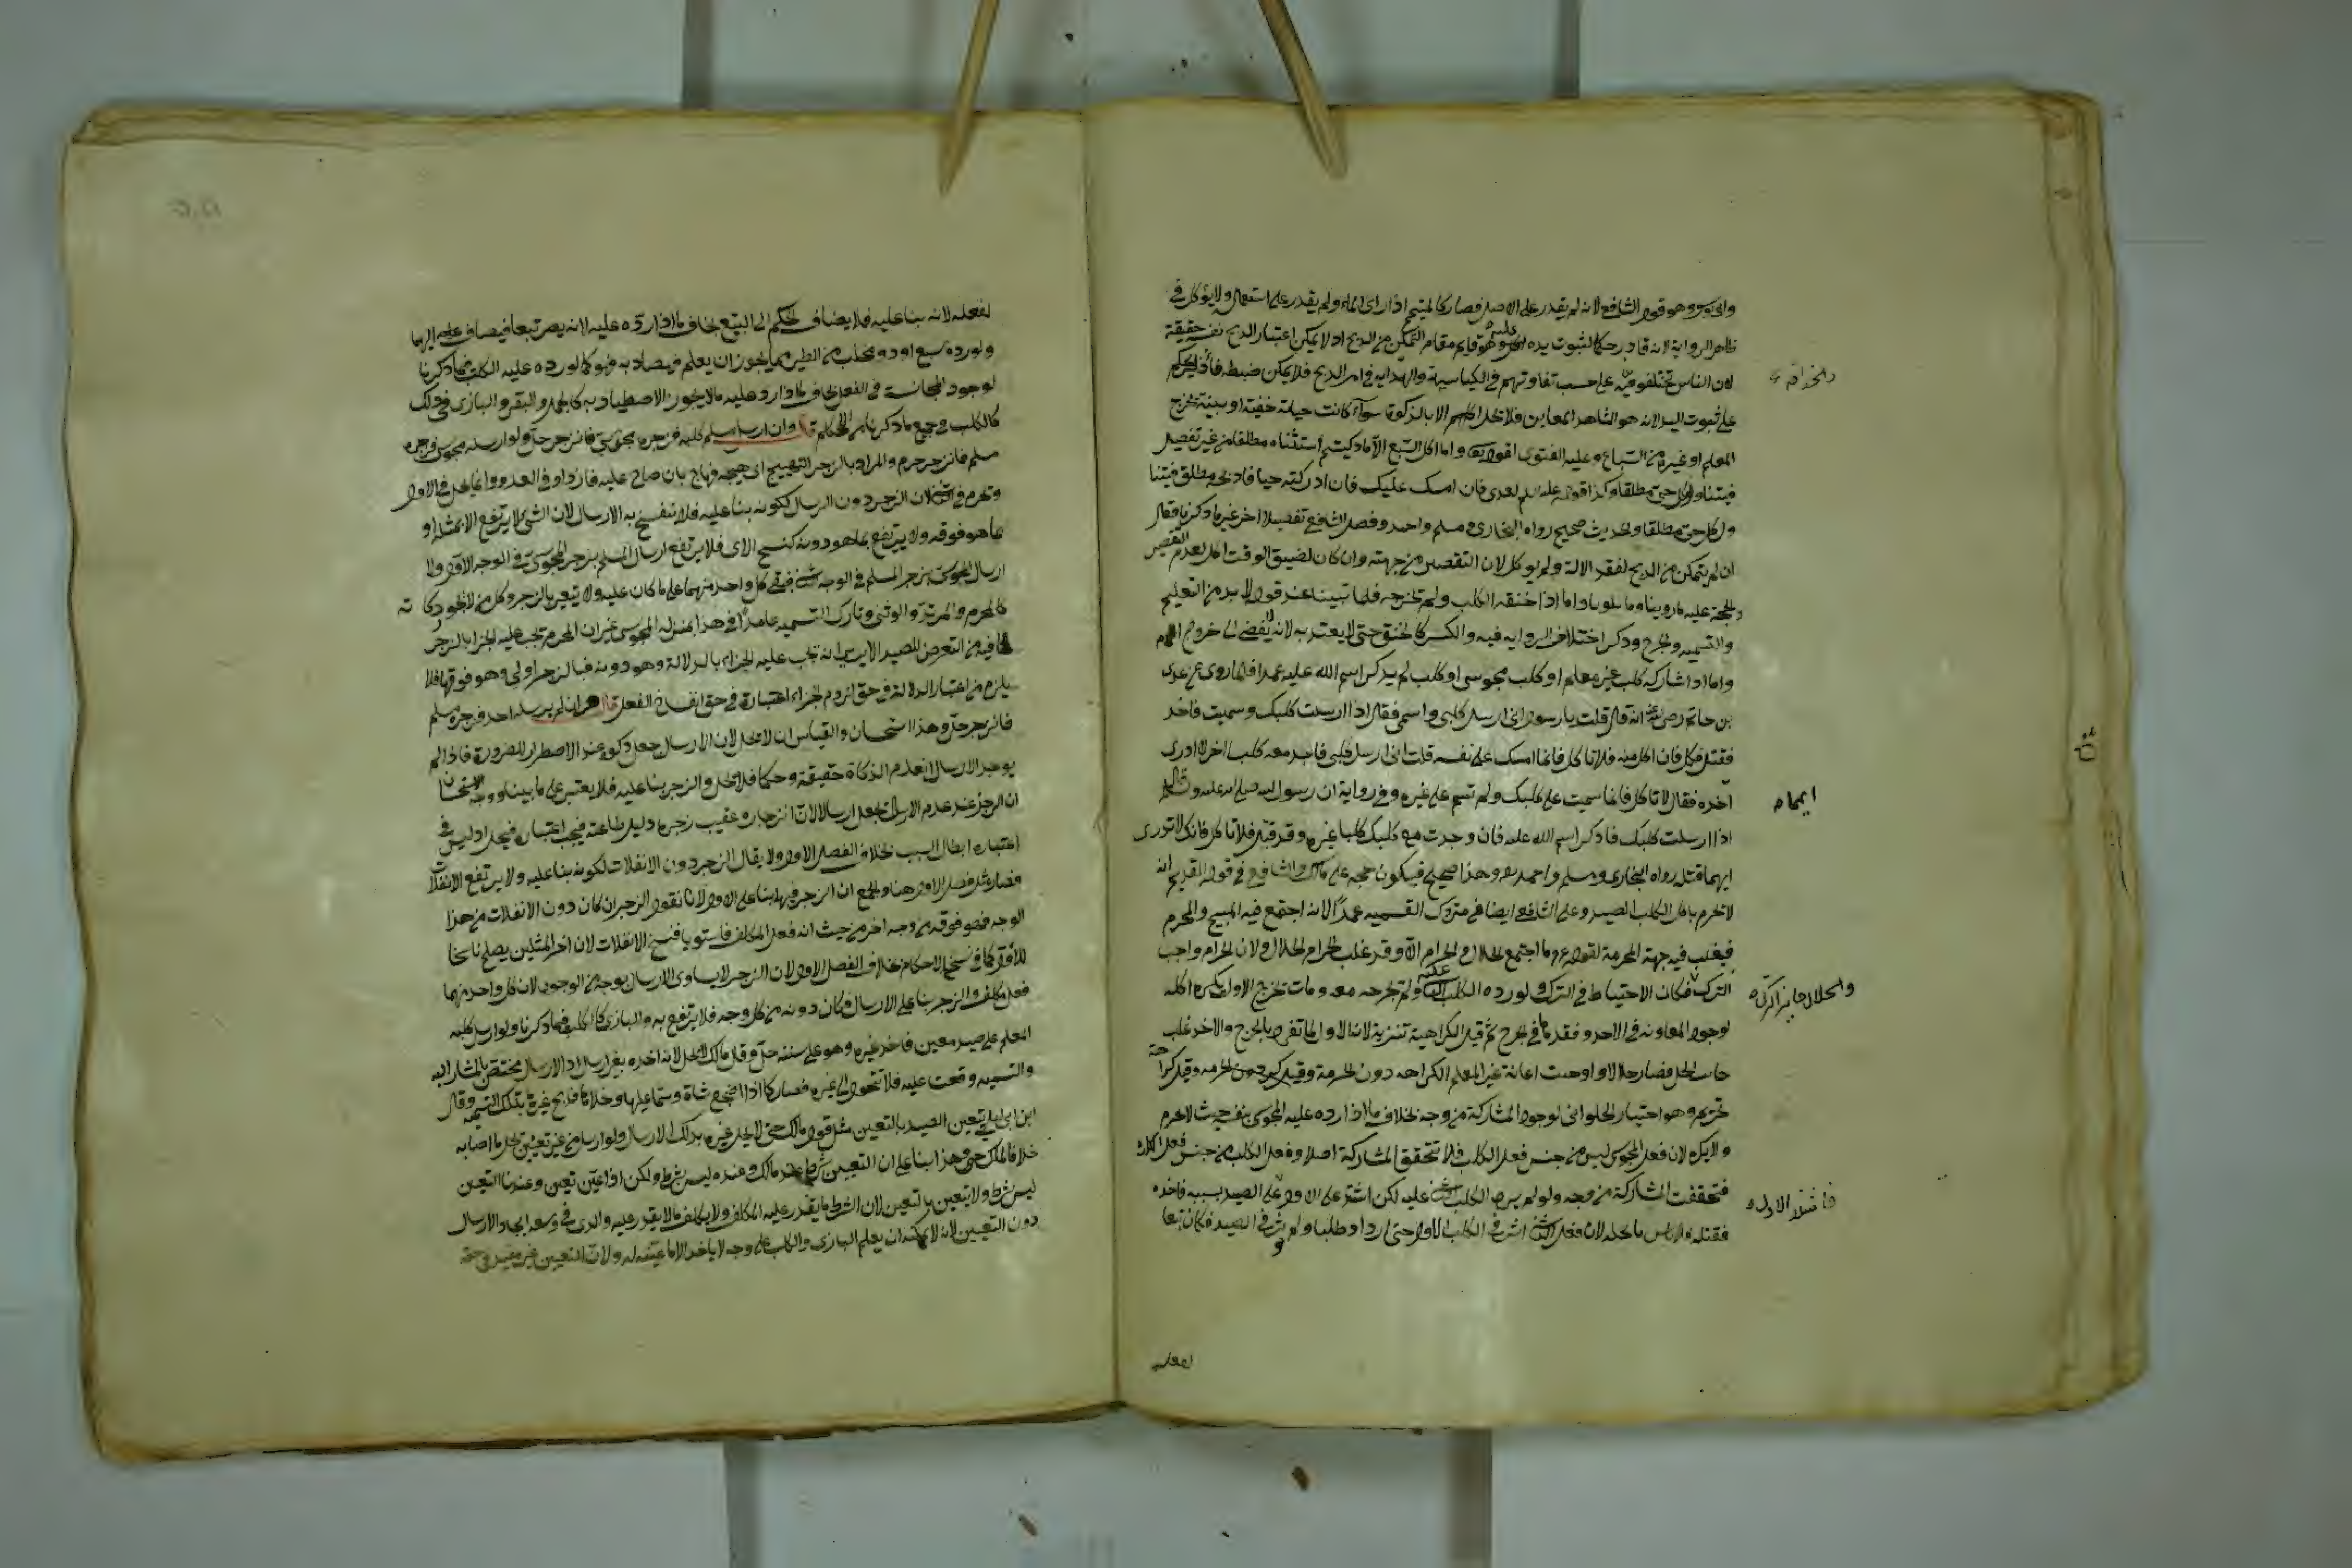 وابي يوسف وهو قول الشافعي لانه لم يقدر على الاصل فصار كالمتيمم اذا راى الماء ولم يقدر على استعماله ولا يؤكل في
ظاهر الرواية لانه قادر حكما لثبوت يده عليه وهو قايم مقام التمكن من الذبح اذ لا يمكن اعتبار الذبح نفسه حقيقة
لان الناس تختلفون فيه على حسب تفاوتهم في الكياسة والهداية في امر الذبح فلا يمكن ضبطه فادير الحكم
على ثبوت اليد لانه هو الشاهد المعاين فلا تحل الا بالذكوة سواء كانت حياته خفية او بينة بجرح
المعلم او غيره من السباع وعليه الفتوى لقوله تعالى وما اكل السبع الا ما ذكيتم استثناه مطلقا من غير تفصيل
فيتناول كل حي مطلقا وكذا قوله عليه السلام لعدي فان امسك عليك فان ادركته حيا فاذبحه مطلق فيتناول
كل حي مطلقا والحديث صحيح رواه البخاري ومسلم واحمد وفصل الشافعي تفصيلا اخر غير ما ذكرنا فقال
ان لم يتمكن من الذبح لفقد الالة ولم يوكل لان التقصير من جهته وان كان لضيق الوقت اكل لعدم التقصير
والحجة عليه ما روينا وما تلونا واما اذا خنقه الكلب ولم تجرحه فلما تبينا عند قوله لا بد من التعليم
والتسمية والجرح وذكر اختلاف الرواية فيه والكسر كالخنق حتى لا يعتد به لانه لا يفضي الى خروج الدم
واما اذا شاركه كلب غير معلم او كلب مجوسي او كلب لم يذكر اسم الله عليه عمدا فلما روى عن عدي
بن حاتم رضي الله عنه انه قال قلت يا رسول الله اني ارسل كلبي واسمي فقال اذا ارسلت كلبك وسميت فاخذ
فقتل فكل فان اكل منه فلا تاكل فانما امسك على نفسه قلت اني ارسل كلبي فاجد معه كلبا اخر لا ادري
اخذه فقال لا تاكل فانما سميت على كلبك ولم تسم على غيره وفي رواية ان رسول الله صلى الله عليه وسلم قال
اذا ارسلت كلبك فاذكر اسم الله عليه فان وجدت مع كلبك كلبا غيره وقد قتل فلا تاكل فانك لا تدري
ايهما قتله رواه البخاري ومسلم واحمد وهذا صحيح فيكون حجة على مالك والشافعي في قوله القديم انه
لا تحرم باكل الكلب الصيد وعلى الشافعي ايضا في متروك التسمية عمدا لانه اجتمع فيه المبيح والمحرم
فيغلب فيه جهة الحرمة لقوله عم ما اجتمع الحلال والحرام الا وقد غلب الحرام الحلال ولان الحرام واجب
الترك فكان الاحتياط في الترك ولو رده الكلب الثاني عليه ولم تجرحه معه ومات بجرح الاول يكره اكله
لوجود المعاونة في الاخذ وفقدها في الجرح ثم قيل الكراهية تنزيه لانه الاول لما تفرد بالجرح والاخذ غلب
جانب الحل فصار حلالا واوجبت اعانة غير المعلم الكراهه دون الحرمة وقيل كراهة
تحريم وهو اختيار الحلواني لوجود المشاركة من وجه بخلاف ما اذا رده عليه المجوسي بنفسه حيث لا تحرم
ولا يكره لان فعل المجوسي ليس من جنس فعل الكلب فلا تتحقق المشاركة اصلا وفعل الكلب من جنس فعل الكلب
فتحققت المشاركة من وجه ولو لم يرده الكلب الثاني عليه لكن اشتد على الاول على الصيد بسببه فاخذه
فقتله لا باس باكله لان فعل الثاني اثر في الكلب الاول حتى ازداد طلبا ولم يؤثر في الصيد فكان تبعا
ايهما
والحلال جايز الترك
فاشتد الاول
لفعله
لفعله لانه بناء عليه فلا يضاف الحكم الى التبع بخلاف ما اذا رده عليه لانه لم يصر تبعا فيضاف عليه اليهما
ولو رده سبع او ذو مخلب من الطير مما يجوز ان يعلم فيصاد به فهو كما لو رده عليه الكلب فيما ذكرنا
لوجود المجانسة في الفعل بخلاف ما اذا رد عليه ما لا يجوز الاصطياد به كالجمل والبقر والبازي في ذلك
كالكلب في جميع ما ذكرنا من الحكم قال وان ارسل مسلم كلبه فزجره مجوسي فانزجر حل ولو ارسله مجوسي فزجره
مسلم فانزجر حرم والمراد بالزجر التهييج اي هيجه فهاج بان صاح عليه فازداد في العدو وانما يحل في الاول
وتحرم في الثاني لان الزجر دون الارسال لكونه بناء عليه فلا ينفسخ به الارسال لان الشيء لا يرتفع الا بمثله او
بما هو فوقه ولا يرتفع بما هو دونه كنسخ الاي فلا يرتفع ارسال المسلم بزجر المجوسي في الوجه الاول ولا
ارسال المجوسي بزجر المسلم في الوجه الثاني فبقي كل واحد منهما على ما كان عليه ولا يتغير بالزجر وكل من لا تجوز ذكاته
كالمحرم والمرتد والوثني وتارك التسمية عامدا في هذا بمنزلة المجوسي غير ان المحرم تجب عليه الجزا بالزجر
لما فيه من التعرض للصيد الا يرى انه تجب عليه الجزاء بالدلالة وهو دونه فبالزجر اولى وهو فوقها فلا
يلزم من اعتبار الدلالة في حق لزوم الجزاء اعتباره في حق افساد الفعل قال وان لم يرسله احد فزجره مسلم
فانزجر حل وهذا استحسان والقياس ان لا تحل لان الارسال جعل ذكوة عند الاضطرار للضرورة فاذا لم
يوجد الارسال انعدم الذكاة حقيقة وحكما فلا تحل والزجر بناء عليه فلا يعتبر على ما بينا ووجه الاستحسان
ان الزجر عند عدم الارسال يجعل ارسالا لان انزجاره عقيب زجره دليل طاعته فيجب اعتباره فيحل اذ ليس في
اعتباره ابطال السبب بخلاف الفصل الاول ولا يقال الزجر دون الانفلات لكونه بناء عليه ولا يرتفع الانفلات
فصار مثل فصل الاول هنا والجامع ان الزجر فيهما بناء على الاول لانا نقول الزجر ان كان دون الانفلات من هذا
الوجه فهو فوقه من وجه اخر من حيث انه فعل المكلف فاستويا فنسخ الانفلات لان اخر المثلين يصلح ناسخا
للاول كما في نسخ الاحكام بخلاف الفصل الاول لان الزجر لا يساوي الارسال بوجه من الوجوه لان كل واحد منهما
فعل مكلف والزجر بناء على الارسال فكان دونه من كل وجه فلا يرتفع به والبازي كالكلب فيما ذكرنا ولو ارسل كلبه
المعلم على صيد معين فاخذ غيره وهو على سننه حل وقال مالك لا تحل لانه اخذه بغير ارسال اذ الارسال مختص بالمشار اليه
والتسمية وقعت عليه فلا تتحول الى غيره فصار كما اذا اضجع شاة وسمى عليها وخلاها فذبح غيرها بتلك التسمية وقال
ابن ابي ليلى يتعين الصيد بالتعيين مثل قول مالك حتى لا يحل غيره بذلك الارسال ولو ارسل من غير تعيين تحل ما اصابه
خلافا لمالك حتى وهذا بناء على ان التعيين شرط عند مالك وعنده ليس بشرط ولكن اذا عين تعين وعندنا التعيين
ليس بشرط ولا يتعين بالتعيين لان الشرط ما يقدر عليه المكلف ولا يكلف ما لا يقدر عليه والذي في وسعه ايجاد الارسال
دون التعيين لانه لا يمكنه ان يعلم البازي والكلب على وجه لا ياخذ الا ما عينه له ولان التعيين غير مفيد في حقه